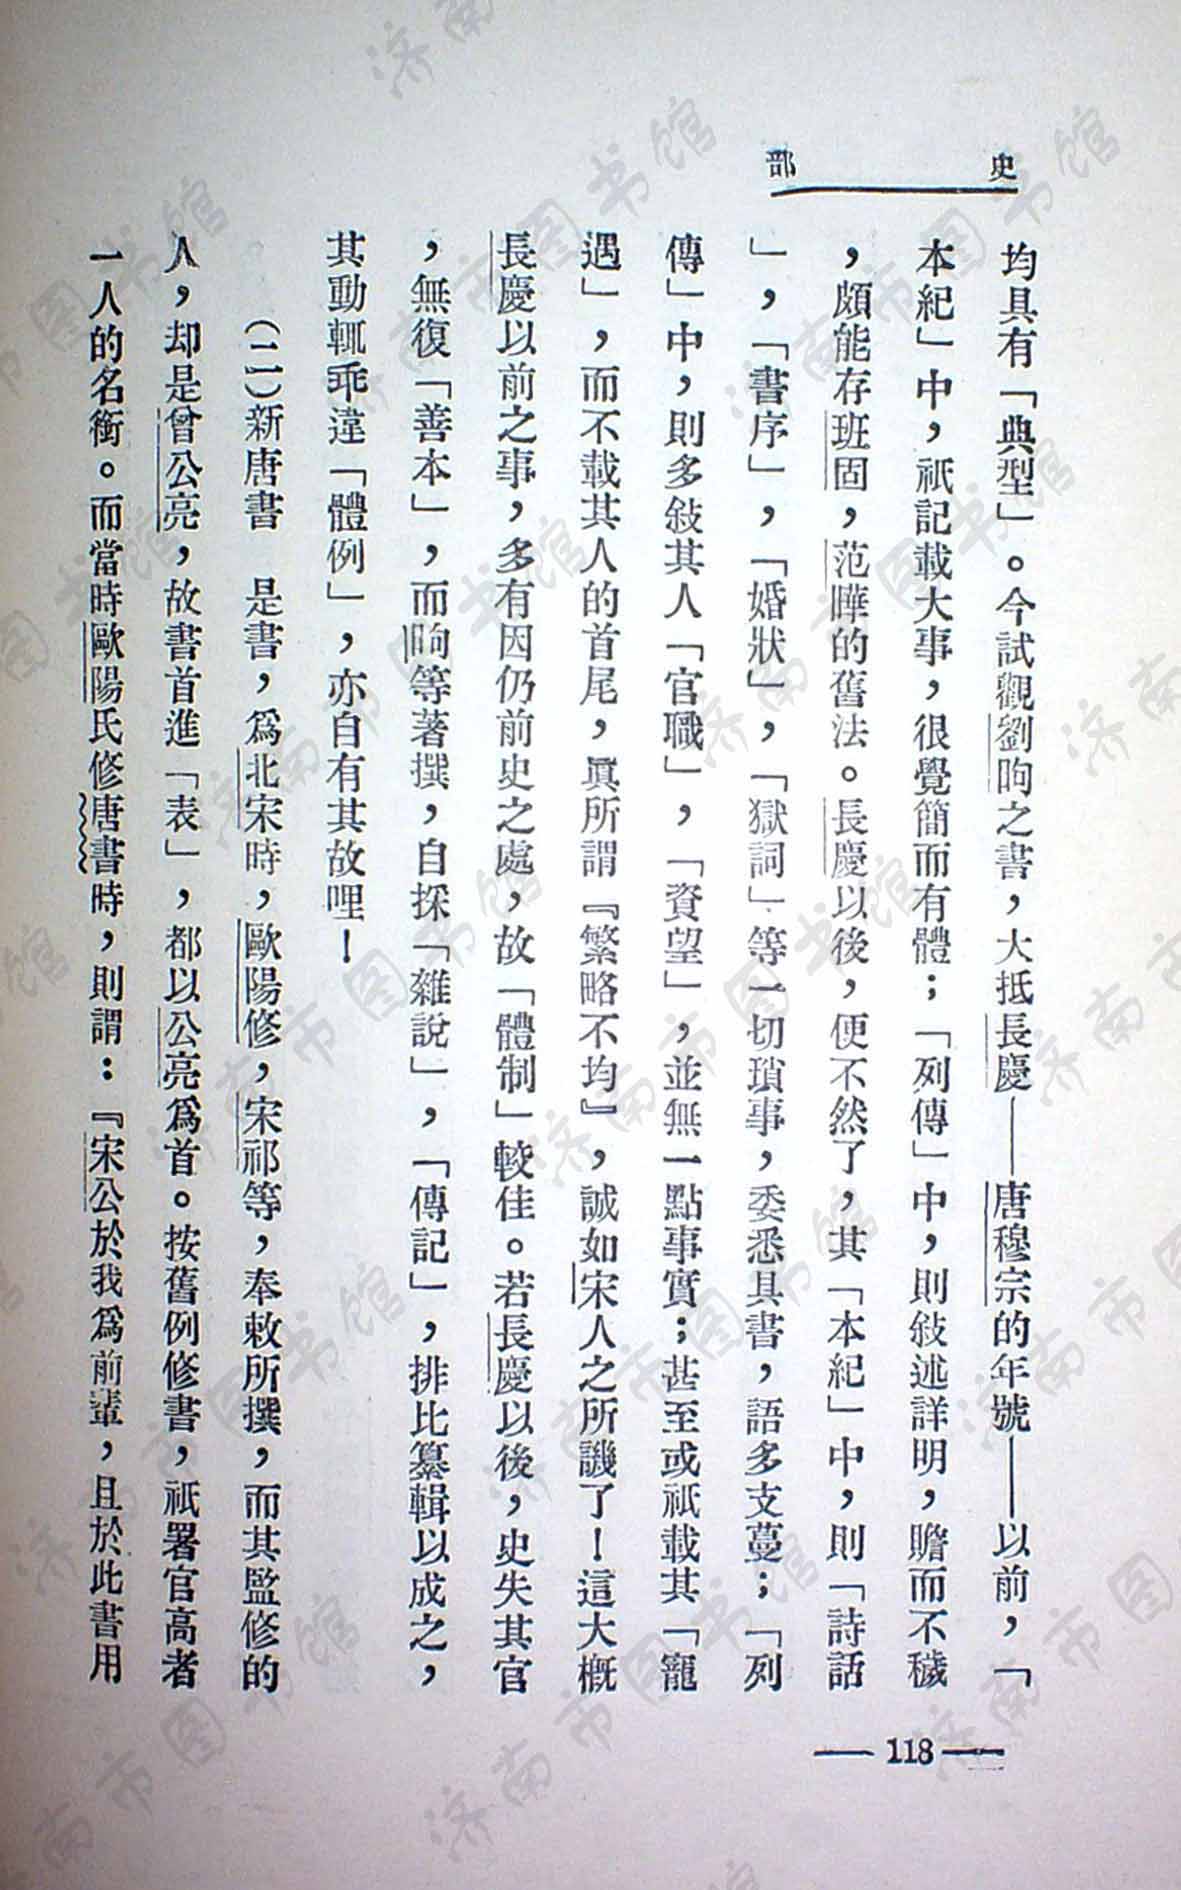 史部
均具有「典型」。今試觀劉昫之書，大抵長慶——唐穆宗的年號——以前，「
本紀」中，祇記載大事，很覺簡而有體；「列傳」中，則敍述詳明，贍而不穢
，頗能存班固，范曄的舊法。長慶以後，便不然了，其「本紀」中，則「詩話
」，「書序」，「婚狀」，「獄詞」等一切瑣事，委悉具書，語多支蔓；「列
傳」中，則多敍其人「官職」，「資望」，並無一點事實；甚至或祇載其「寵
遇」，而不載其人的首尾，眞所謂『繁略不均』，誠如宋人之所譏了！這大概
長慶以前之事，多有因仍前史之處，故「體制」較佳。若長慶以後，史失其官
，無復「善本」，而昫等著撰，自採「雜說」，「傳記」，排比纂輯以成之，
其動輒乖違「體例」，亦自有其故哩！
（二）新唐書　是書，爲北宋時，歐陽修，宋祁等，奉敕所撰，而其監修的
人，却是曾公亮，故書首進「表」，都以公亮爲首。按舊例修書，祇署官高者
一人的名銜。而當時歐陽氏修唐書時，則謂：『宋公於我爲前輩，且於此書用
— 118 —
济南市图书馆